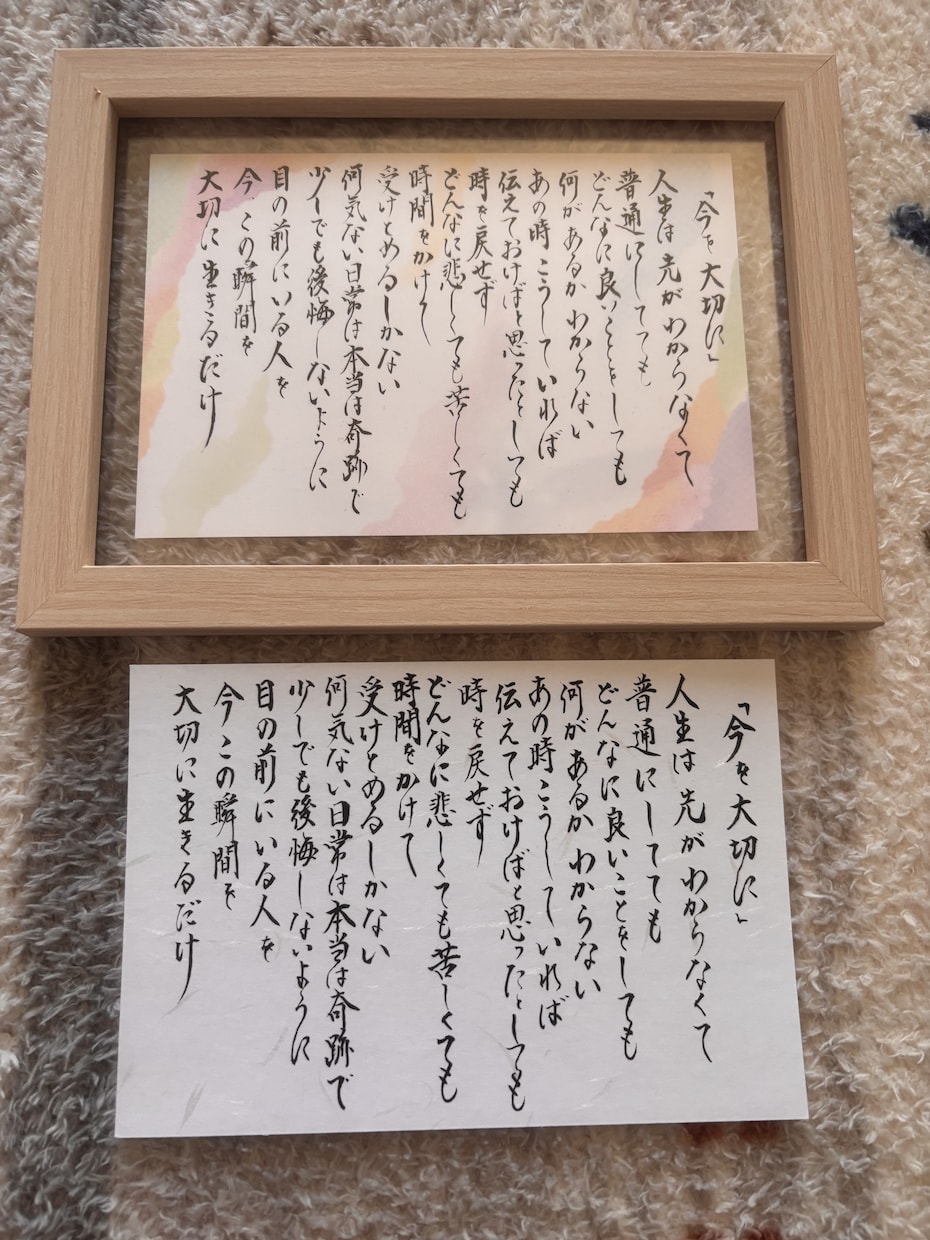 「今を大切に」
人生は先がわからなくて
普通にしてても
どんなに良いことをしても
何があるかわからない
あの時こうしていれば
伝えておけばと思ったとしても
時を戻せず
どんなに悲しくても苦しくても
時間をかけて
受けとめるしかない
何気ない日常は本当は奇跡で
少しでも後悔しないように
目の前にいる人を
今、この瞬間を
大切に生きるだけ
「今を大切に」
人生は先がわからなくて
普通にしてても
どんなに良いことをしても
何があるかわからない
あの時こうしていれば
伝えておけばと思ったとしても
時を戻せず
どんなに悲しくても苦しくても
時間をかけて
受けとめるしかない
何気ない日常は本当は奇跡で
少しでも後悔しないように
目の前にいる人を
今この瞬間を
大切に生きるだけ